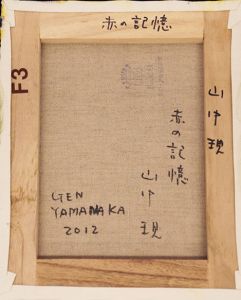 赤の記憶
F3
山中現
赤の記憶
山中現
GEN
YAMANAKA
2012